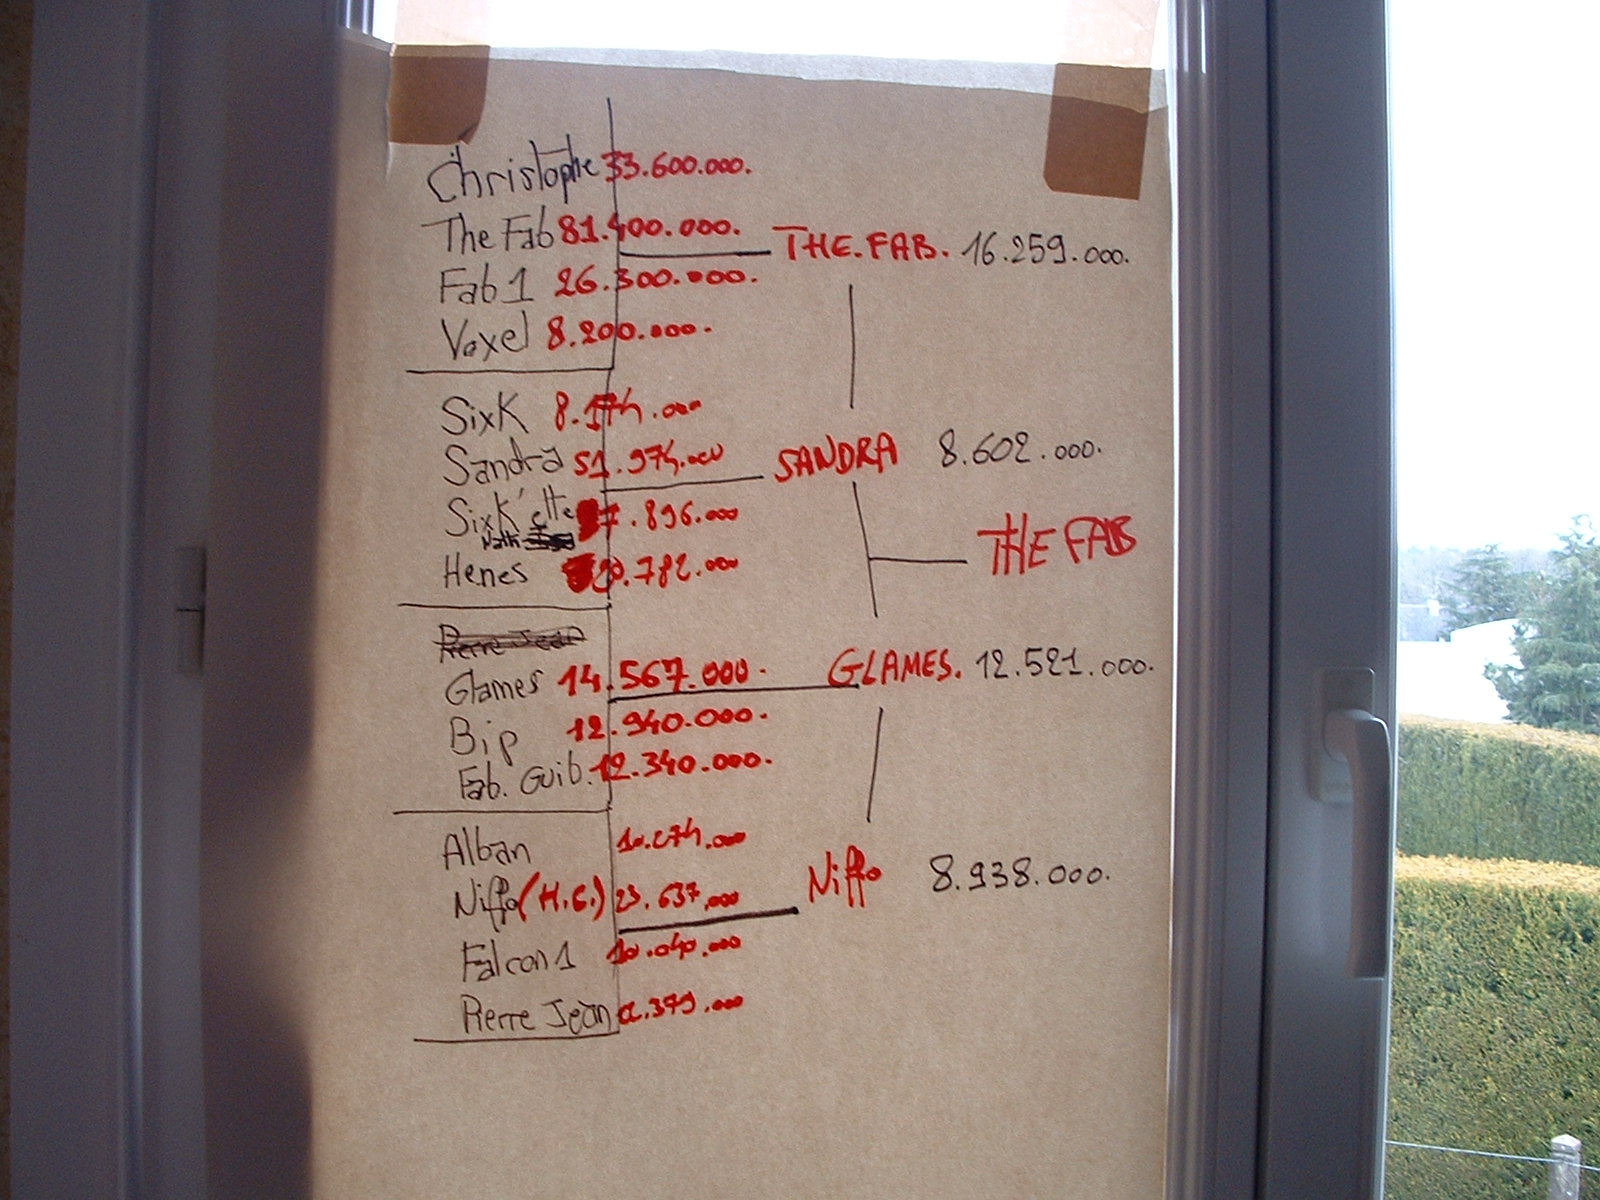 Christophe 33.600.000.
The Fab 81.400.000.
THE.FAB. 16.259.000.
Fab 1 26.300.000.
Voxel 8.200.000.
SixK 8.174.000
Sandra 51.974.000
SANDRA 8.602.000.
SixK'ette 7.896.000
THE FAB
Henes 20.782.000
Pierre Jean
Glames 14.567.000.
GLAMES. 12.521.000.
Bip 12.940.000.
Fab. Guib. 12.340.000.
Alban
Niffo (H.C.) 23.637.000
Niffo 8.938.000.
Falcon 1 10.040.000
Pierre Jean .379.000